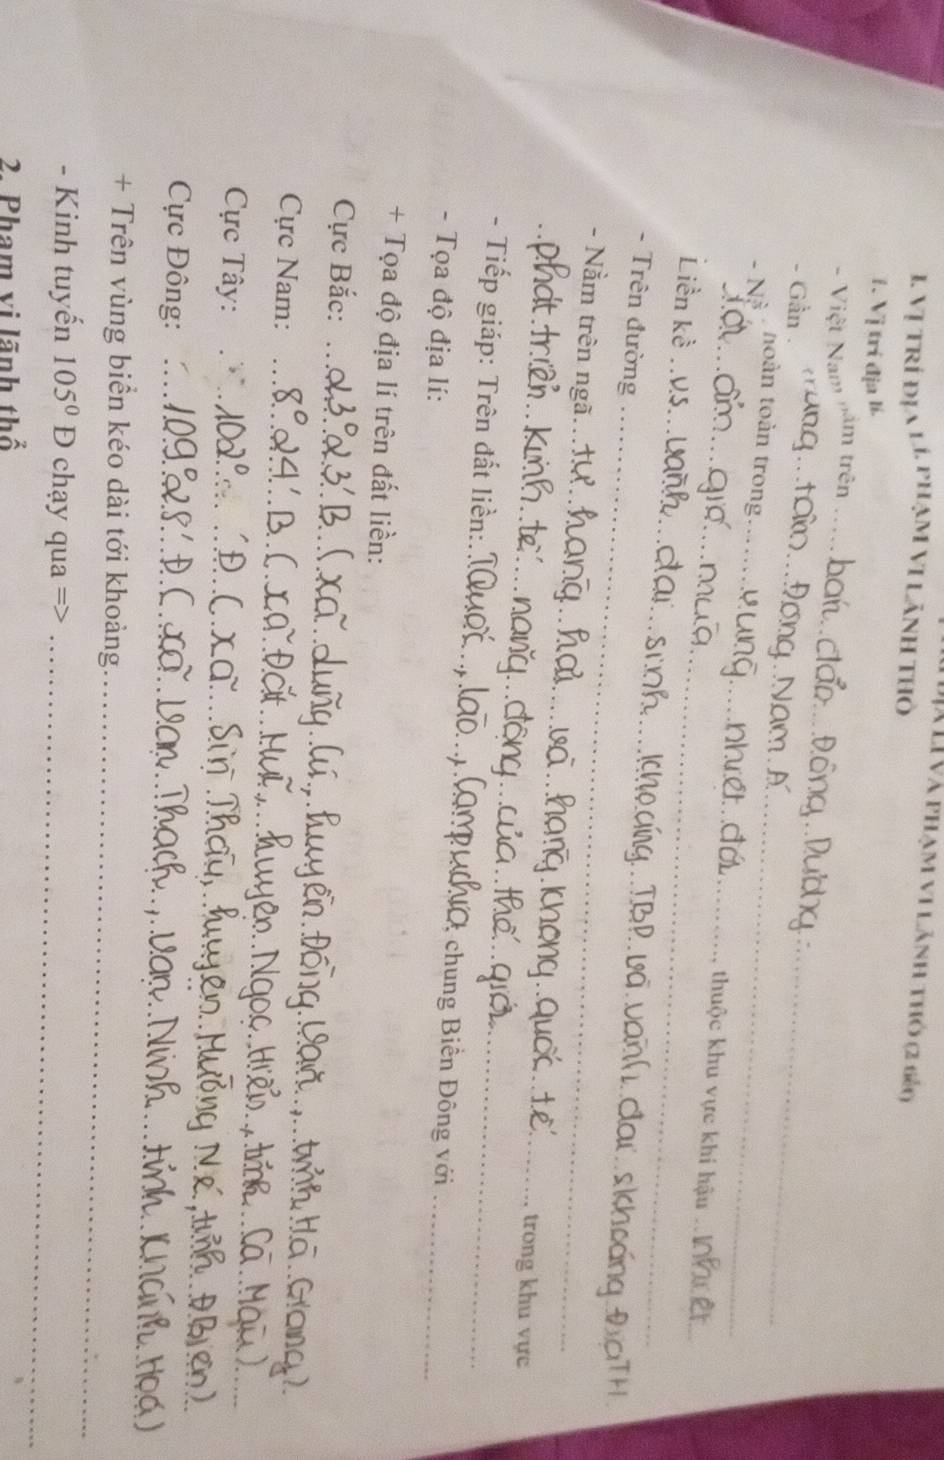 ĐỊA LÍ VÀ PHẠM VI LÃNH THỔ (2 tiết)
I. VỊ TRÍ ĐỊA LÍ. PHẠM VI LÃNH THỔ
1. Vị trí địa lí.
- Việt Nam nằm trên ..... bán đảo Đông Dương.
- Gần trung tâm Đông Nam Á
- hoàn toàn trong ..... vùng nhiệt đới ....., thuộc khu vực khí hậu nhiệt
ẩm gió mùa
Liền kề vs vành đai sinh khoáng TBD và vành đai skhoáng ĐiaTH
- Trên đường .....
- Nằm trên ngã tư hàng hải và hàng không quốc tế ....., trong khu vực
phát triển kinh tế năng động của thế giới
- Tiếp giáp: Trên đất liền: TQuốc, Lào, Campuchia chung Biển Đông với .....
- Tọa độ địa lí:
+ Tọa độ địa lí trên đất liền:
Cực Bắc: 23°23'B (xã Lũng Cú, huyện Đồng Văn, tỉnh Hà Giang)
Cực Nam: 8°24'B (xã Đất Mũi, huyện Ngọc Hiển, tỉnh Cà Mau)
Cực Tây: 102° 'Đ (xã Sín Thầu, huyện Mường Né, tỉnh ĐBiên)
Cực Đông: 109°28'Đ (xã Vạn Thạch, Vạn Ninh tỉnh Khánh Hoà)
+ Trên vùng biển kéo dài tới khoảng .....
- Kinh tuyến 105⁰ Đ chạy qua => .....
2. Phạm vi lãnh thổ